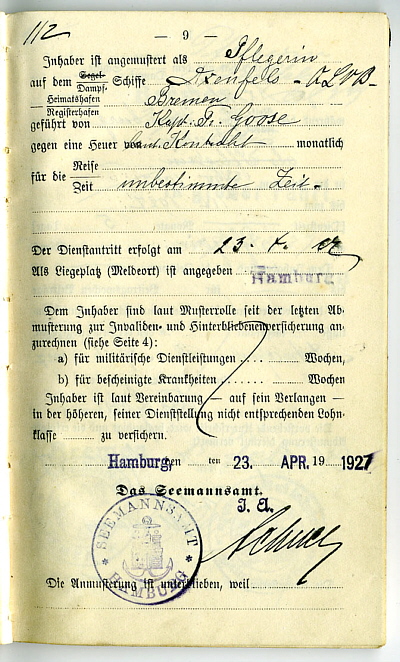 112
— 9 —
Inhaber ist angemustert als Pflegerin
auf dem Segel- Dampf- Schiffe Ixenfels - QLVB -
Heimatshafen Bremen
Registerhafen
geführt von Kapt. Fr. Goose
gegen eine Heuer von laut Kontrakt monatlich
für die Reise
Zeit unbestimmte Zeit -
Der Dienstantritt erfolgt am 23. 4. 27
Als Liegeplatz (Meldeort) ist angegeben Hamburg
Dem Inhaber sind laut Musterrolle seit der letzten Ab-
musterung zur Invaliden- und Hinterbliebenenversicherung an-
zurechnen (siehe Seite 4):
a) für militärische Dienstleistungen .... Wochen,
b) für bescheinigte Krankheiten ........ Wochen
Inhaber ist laut Vereinbarung — auf sein Verlangen —
in der höheren, seiner Dienststellung nicht entsprechenden Lohn-
klasse ........ zu versichern.
Hamburg, den ten 23. APR. 19 1927
Das Seemannsamt.
J. A.
SEEMANNSAMT
* HAMBURG *
Die Anmusterung ist unterblieben, weil